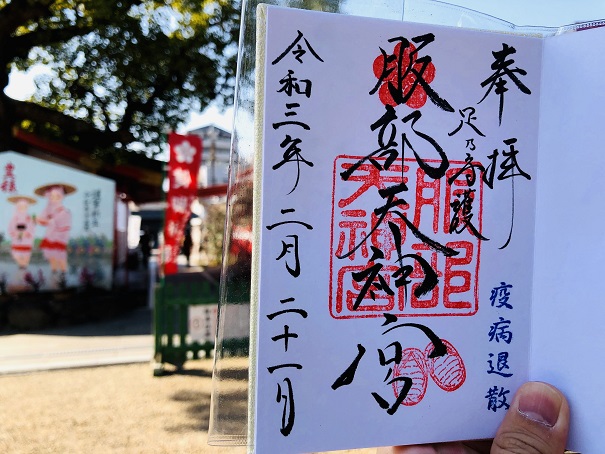 奉拝
足乃守護
疫病退散
服部天神宮
服部
天神宮
令和三年 二月 二十一日